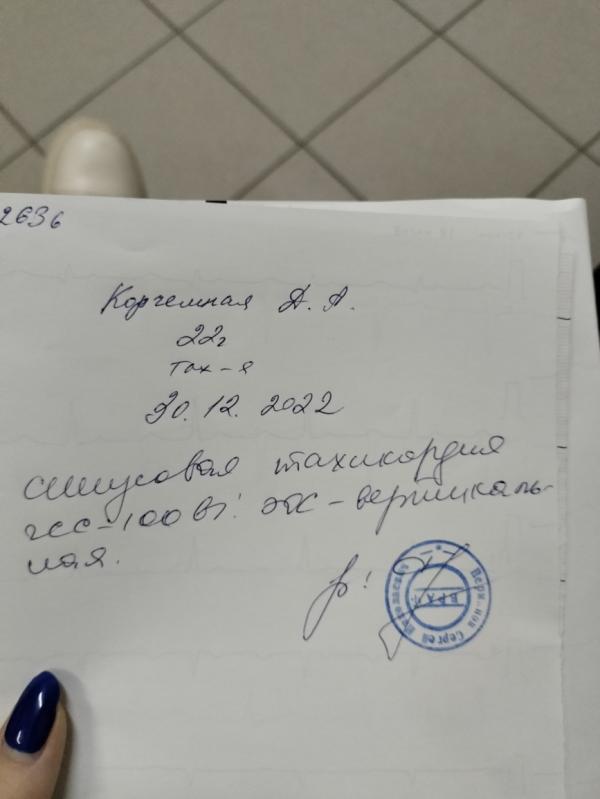 2636
Корчемная Д. А.
22г
тах-я
30.12.2022
синусовая тахикардия
чсс-100 в1! ЭОС-вертикаль-
ная.
Вр!
ВРАЧ
Сергей